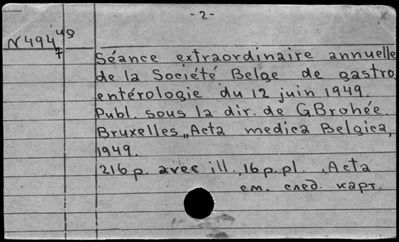 - 2 -
N494 49/7
Séance extraordinaire annuelle
de la Société Belge de gastro
entérologie du 12 juin 1949.
Publ. sous la dir. de G.Brohée.
Bruxelles, „Acta medica Belgica,
1949.
216 p. avec ill., 16 p. pl. .Acta
см. след. карт.